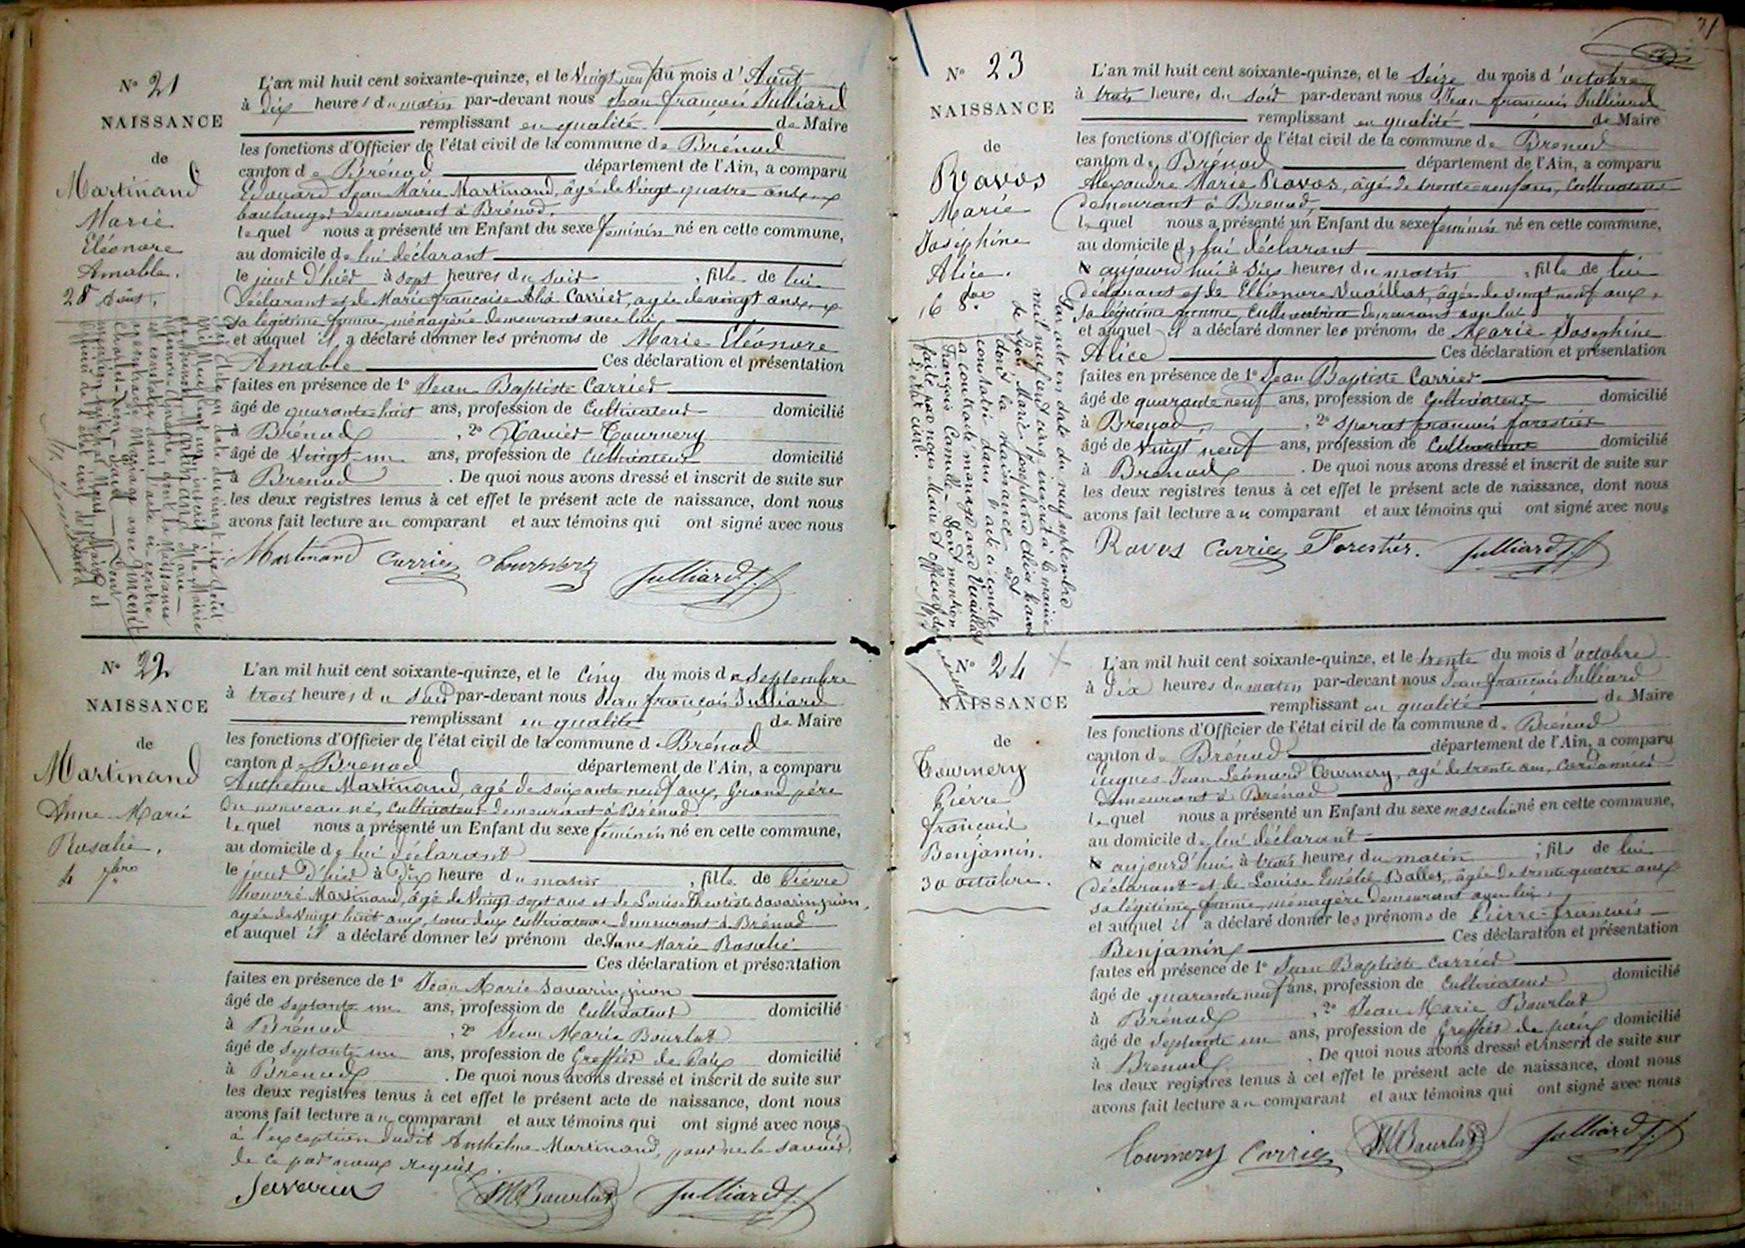 N° 21
NAISSANCE
de
Martinand
Marie
Eléonore
Amable.
28 Août.
L'an mil huit cent soixante-quinze, et le Vingt neuf du mois d'Août
à Dix heures du matin par-devant nous Jean françois Julliard
remplissant en qualité de Maire
les fonctions d'Officier de l'état civil de la commune de Brénod
canton de Brénod département de l'Ain, a comparu
Edouard Jean Marie Martinand, âgé de Vingt quatre ans
boulanger demeurant à Brénod.
lequel nous a présenté un Enfant du sexe féminin né en cette commune,
au domicile de lui déclarant
le jour d'hier à sept heures du soir, fille de lui
Déclarant et de Marie françoise Carrier, agée de vingt ans
sa légitime femme, ménagère demeurant avec lui
et auquel il a déclaré donner les prénoms de Marie Eléonore
Amable Ces déclaration et présentation
faites en présence de 1° Jean Baptiste Carrier
âgé de quarante huit ans, profession de Cultivateur domicilié
à Brénod, 2° Xavier Tournery
âgé de Vingt un ans, profession de Cultivateur domicilié
à Brenod. De quoi nous avons dressé et inscrit de suite sur
les deux registres tenus à cet effet le présent acte de naissance, dont nous
avons fait lecture au comparant et aux témoins qui ont signé avec nous
Martinand Carrier Tournery Julliard J. f.
N° 22
NAISSANCE
de
Martinand
Anne Marie
Rosalie.
4 7bre
L'an mil huit cent soixante-quinze, et le Cinq du mois de Septembre
à trois heures du soir par-devant nous Jean françois Julliard
remplissant en qualité de Maire
les fonctions d'Officier de l'état civil de la commune de Brénod
canton de Brenod département de l'Ain, a comparu
Anthelme Martinand, agé de soixante neuf ans, Grand père
du nouveau né, Cultivateur demeurant à Brénod.
lequel nous a présenté un Enfant du sexe féminin né en cette commune,
au domicile de lui déclarant
le jour d'hier à Dix heure du matin, fille de Pierre
honoré Martinand, âgé de Vingt sept ans et de Louise Savarin
agée de Vingt huit ans, tous deux cultivateurs demeurant à Brénod
et auquel il a déclaré donner les prénom de Anne Marie Rosalie
Ces déclaration et présentation
faites en présence de 1° Jean Marie Savarin
âgé de septante un ans, profession de Cultivateur domicilié
à Brénod, 2° Jean Marie Bourlot
âgé de septante un ans, profession de Greffier de Paix domicilié
à Brenod. De quoi nous avons dressé et inscrit de suite sur
les deux registres tenus à cet effet le présent acte de naissance, dont nous
avons fait lecture au comparant et aux témoins qui ont signé avec nous
à l'exception dudit Anthelme Martinand, pour ne le savoir,
de ce par nous requis.
Savarin JMBourlot Julliard J. f.
N° 23
NAISSANCE
de
Ravos
Marie
Joséphine
Alice.
16 8bre
Par acte en date du neuf septembre
mil neuf cent cinq, inscrit à la mairie
de Lyon, Marie Joséphine Alice Ravos
dont la naissance est
constatée dans l'acte ci-contre
a contracté mariage avec Vuaillat
François Camille. Dont mention
faite par nous Maire et officier de
l'état civil.
L'an mil huit cent soixante-quinze, et le Seize du mois d'octobre
à trois heures du soir par-devant nous Jean françois Julliard
remplissant en qualité de Maire
les fonctions d'Officier de l'état civil de la commune de Brenod
canton de Brénod département de l'Ain, a comparu
Alexandre Marie Ravos, âgé de trente neuf ans, Cultivateur
demeurant à Brenod,
lequel nous a présenté un Enfant du sexe féminin né en cette commune,
au domicile de lui déclarant
aujourd'hui à Six heures du matin, fille de lui
déclarant et de Eléonore Vuaillat, âgée de vingt neuf ans,
sa légitime femme, Cultivatrice demeurant avec lui
et auquel il a déclaré donner les prénoms de Marie Joséphine
Alice Ces déclaration et présentation
faites en présence de 1° Jean Baptiste Carrier
âgé de quarante neuf ans, profession de Cultivateur domicilié
à Brenod, 2° Sperat françois forestier
âgé de Vingt neuf ans, profession de Cultivateur domicilié
à Brenod. De quoi nous avons dressé et inscrit de suite sur
les deux registres tenus à cet effet le présent acte de naissance, dont nous
avons fait lecture au comparant et aux témoins qui ont signé avec nous
Ravos Carrier Forestier. Julliard J. f.
N° 24
NAISSANCE
de
Tournery
Pierre
françois
Benjamin.
30 octobre.
L'an mil huit cent soixante-quinze, et le trente du mois d'octobre
à dix heures du matin par-devant nous Jean françois Julliard
remplissant en qualité de Maire
les fonctions d'Officier de l'état civil de la commune de Brénod
canton de Brénod département de l'Ain, a comparu
Jean Léonard Tournery, agé de trente ans, Cordonnier
demeurant à Brénod
lequel nous a présenté un Enfant du sexe masculin né en cette commune,
au domicile de lui déclarant
aujourd'hui à trois heures du matin, fils de lui
déclarant et de Louise Emélie Ballet, âgée de trente quatre ans
sa légitime femme ménagère demeurant avec lui,
et auquel il a déclaré donner les prénoms de Pierre françois
Benjamin Ces déclaration et présentation
faites en présence de 1° Jean Baptiste Carrier
âgé de quarante neuf ans, profession de Cultivateur domicilié
à Brénod, 2° Jean Marie Bourlot
âgé de septante un ans, profession de Greffier de paix domicilié
à Brenod. De quoi nous avons dressé et inscrit de suite sur
les deux registres tenus à cet effet le présent acte de naissance, dont nous
avons fait lecture au comparant et aux témoins qui ont signé avec nous
Tournery Carrier JMBourlot Julliard J. f.